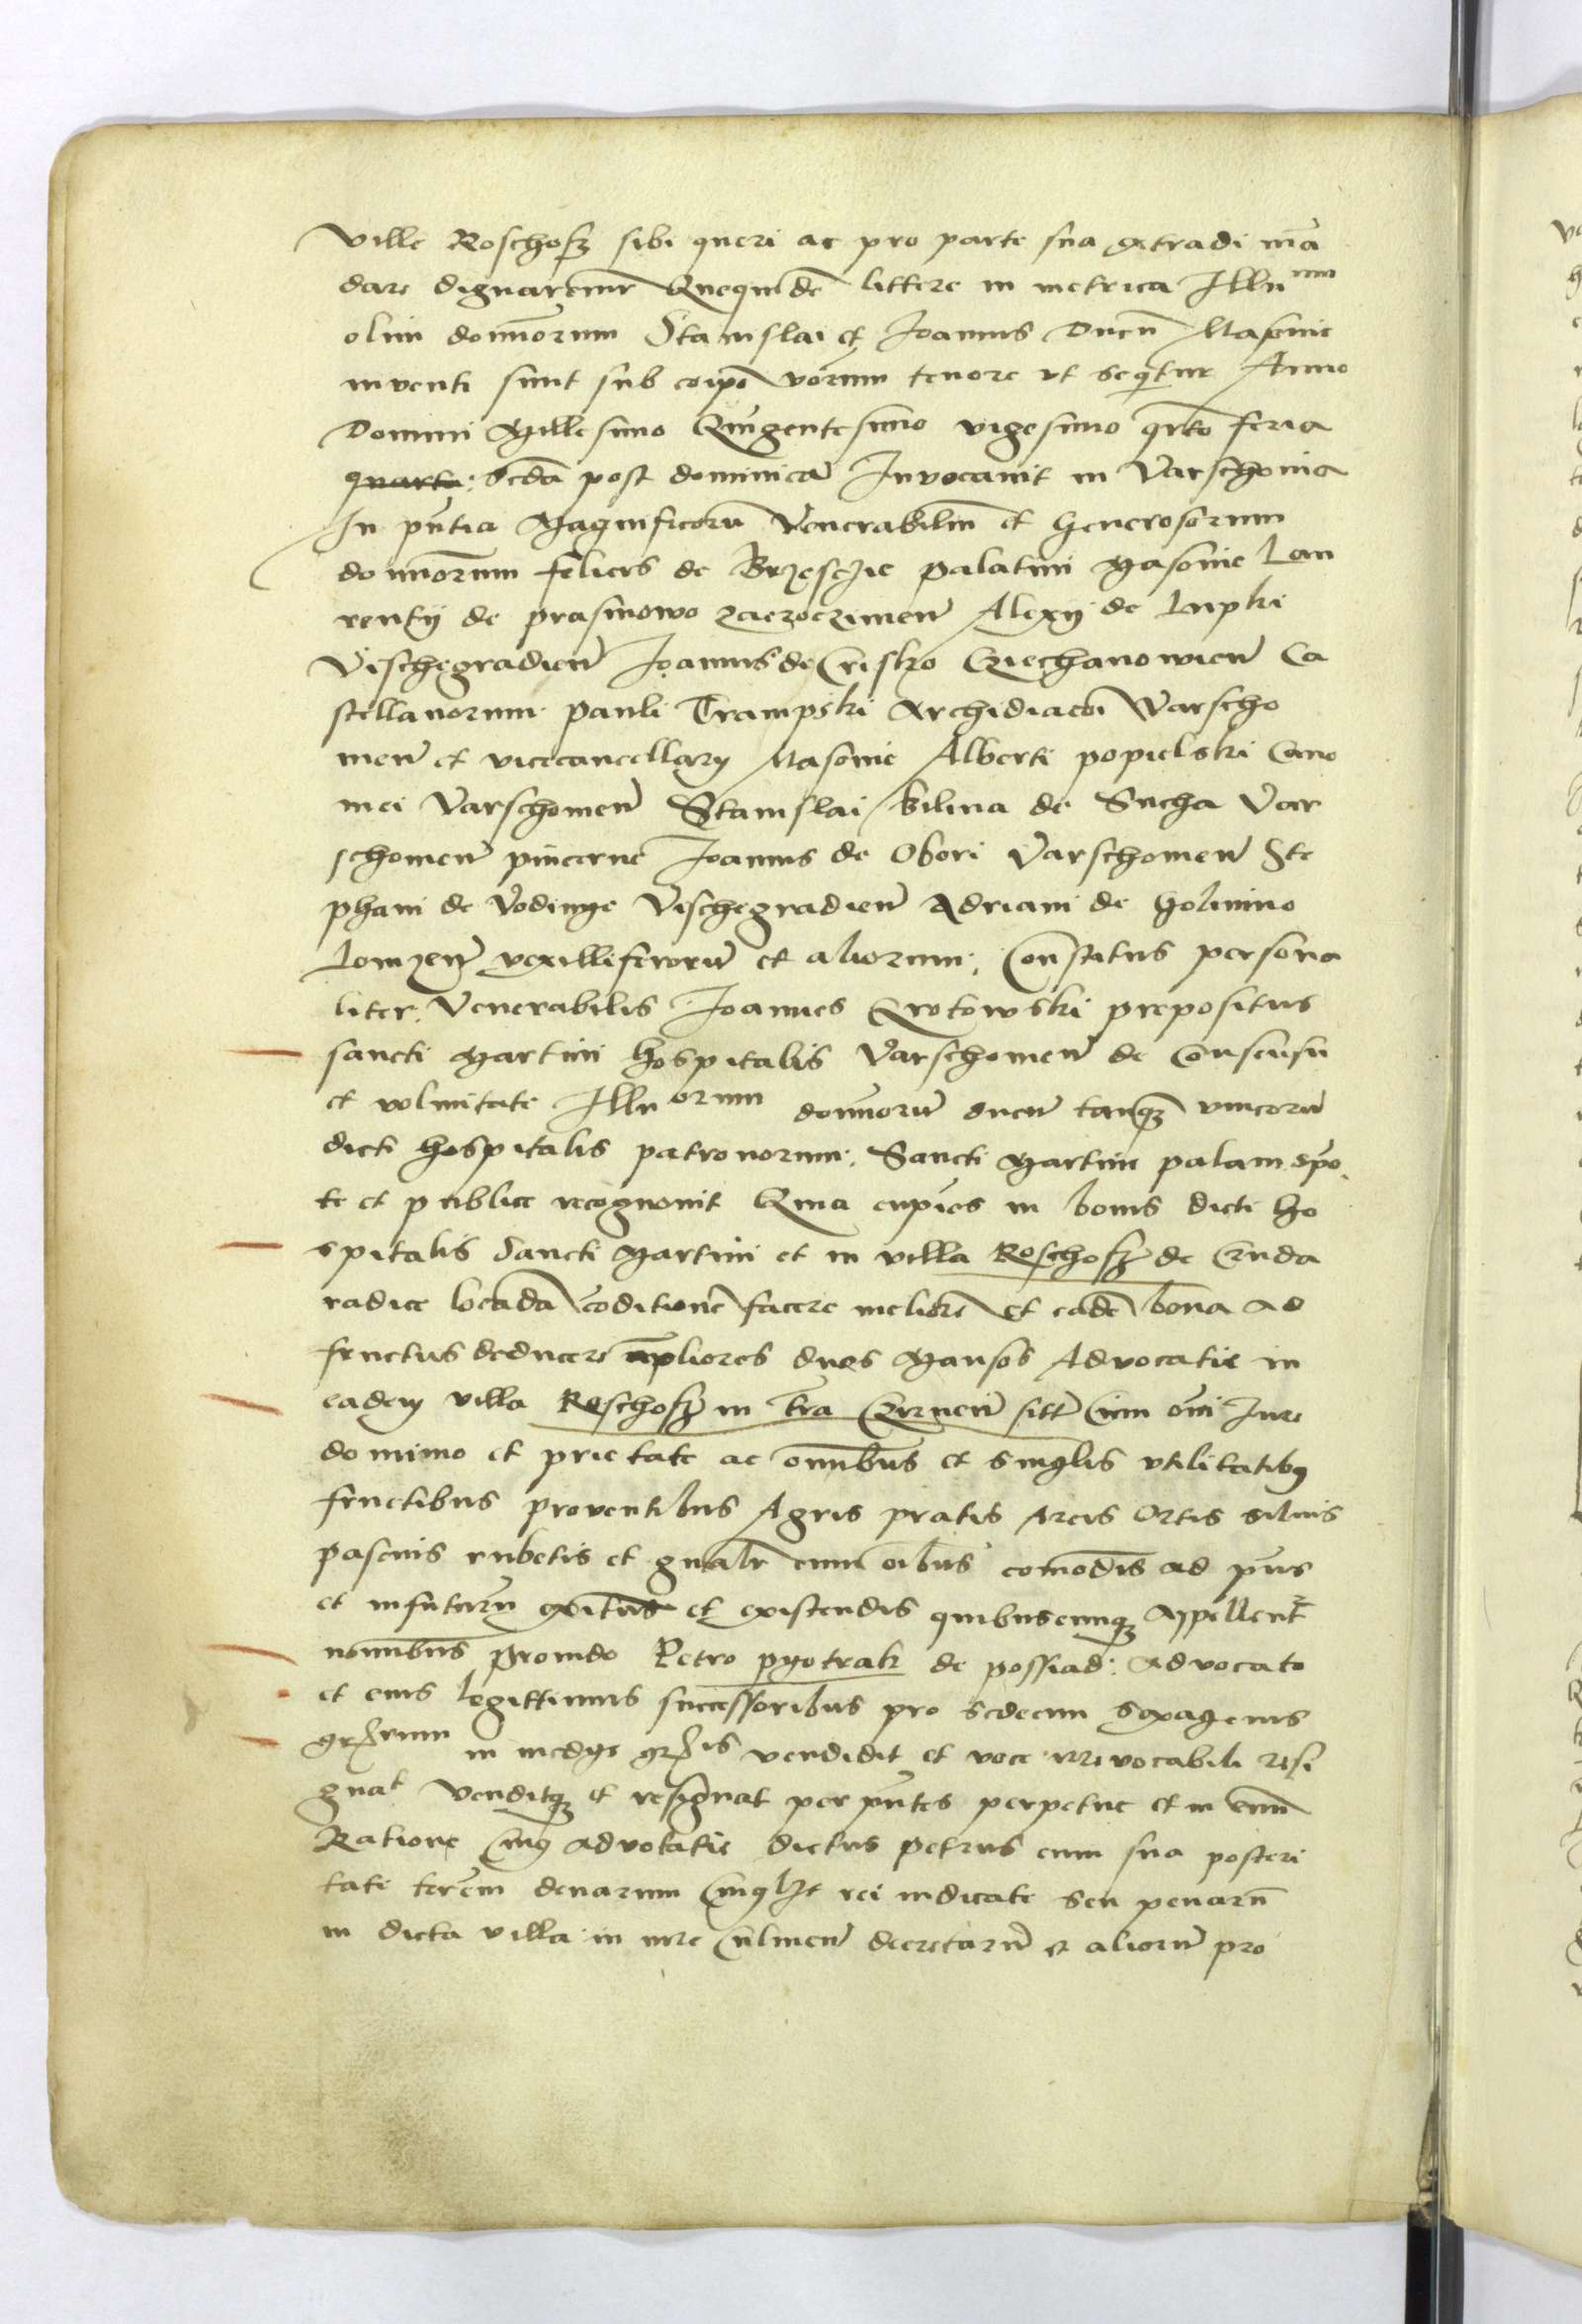 ville Roschosz sibi queri ac pro parte sua extradi mā
dare dignaremr Quequidē littere in metrica Illu mm
olim domīorum Stanislai et Joannis Ducū Masovie
inventi sunt sub eorum tenore ut sequitur Anno
Domini Millesimo Quīgentesimo vigesimo qrto feria
quarta: scda post dominicā Invocavit in Varschovia
In pntia Magnificorū Venerabiliū et Generosorum
domīorum felicis de Brzesczie palatini Masovie Lau
rentij de prasmowo zaczoczimen̄ Alexij de Lupki
Vischegradien̄ Joannis de Crisko Cziechanowien̄ Ca
stellanorum pauli Trampski Archidiacoī Warscho
vien̄ et vicecancellarij Masovie Alberti popielski Cano
nici Varschovien̄ Stanislai bilina de Sucha Var
schovien̄ pincerne Joannis de Obori Varschovien̄ Ste
phani de Vodinye Vischegradien̄ Adriani de Golimino
Lomzen̄ vexilliferorū et aliorum; Constitutus persona
liter. Venerabilis Joannes Crotowski prepositus
sancti Martini hospitalis Varschovien̄ de Consensu
et voluntate Illu orum domīorū ducū tanqz unicorū
dicti hospitalis patronorum. Sancti Martini palam spo
te et publice recognovit Quia cupiēs in bonis dicti ho
spitalis Sancti Martini et in villa Roschosz de Cruda
radice locādā cōditionē facere meliorē et eadē bona ad
fructus deducere āpliores duos Mansos Advocatie in
eadem villa Roschosz in tra Czirnen̄ sitt Cum oīni Jure
dominio et prietate ac omnibus et singlis utilitatibus
fructibus proventibus Agris pratis Areis Ortis silvis
pascuis rubetis et gnalr cum oībus comodis ad pns
et infuturū exitūs et existendis quibuscumqz Appellent
nominibus provido Petro pyotrak de possiad: Advocato
et eius legittimis successoribus pro sedecim sexagenis
grorum in medys gris vendidit et voce irrevocabili resi
gnat venditqz et resignat per pntes perpetue et in evum
Ratione Cuius advocatie dictus petrus cum sua posteri
tate tercm denarum rei iudicate seu penarū
in dicta villa in iure Culmen̄ decretarū et aliorū pro